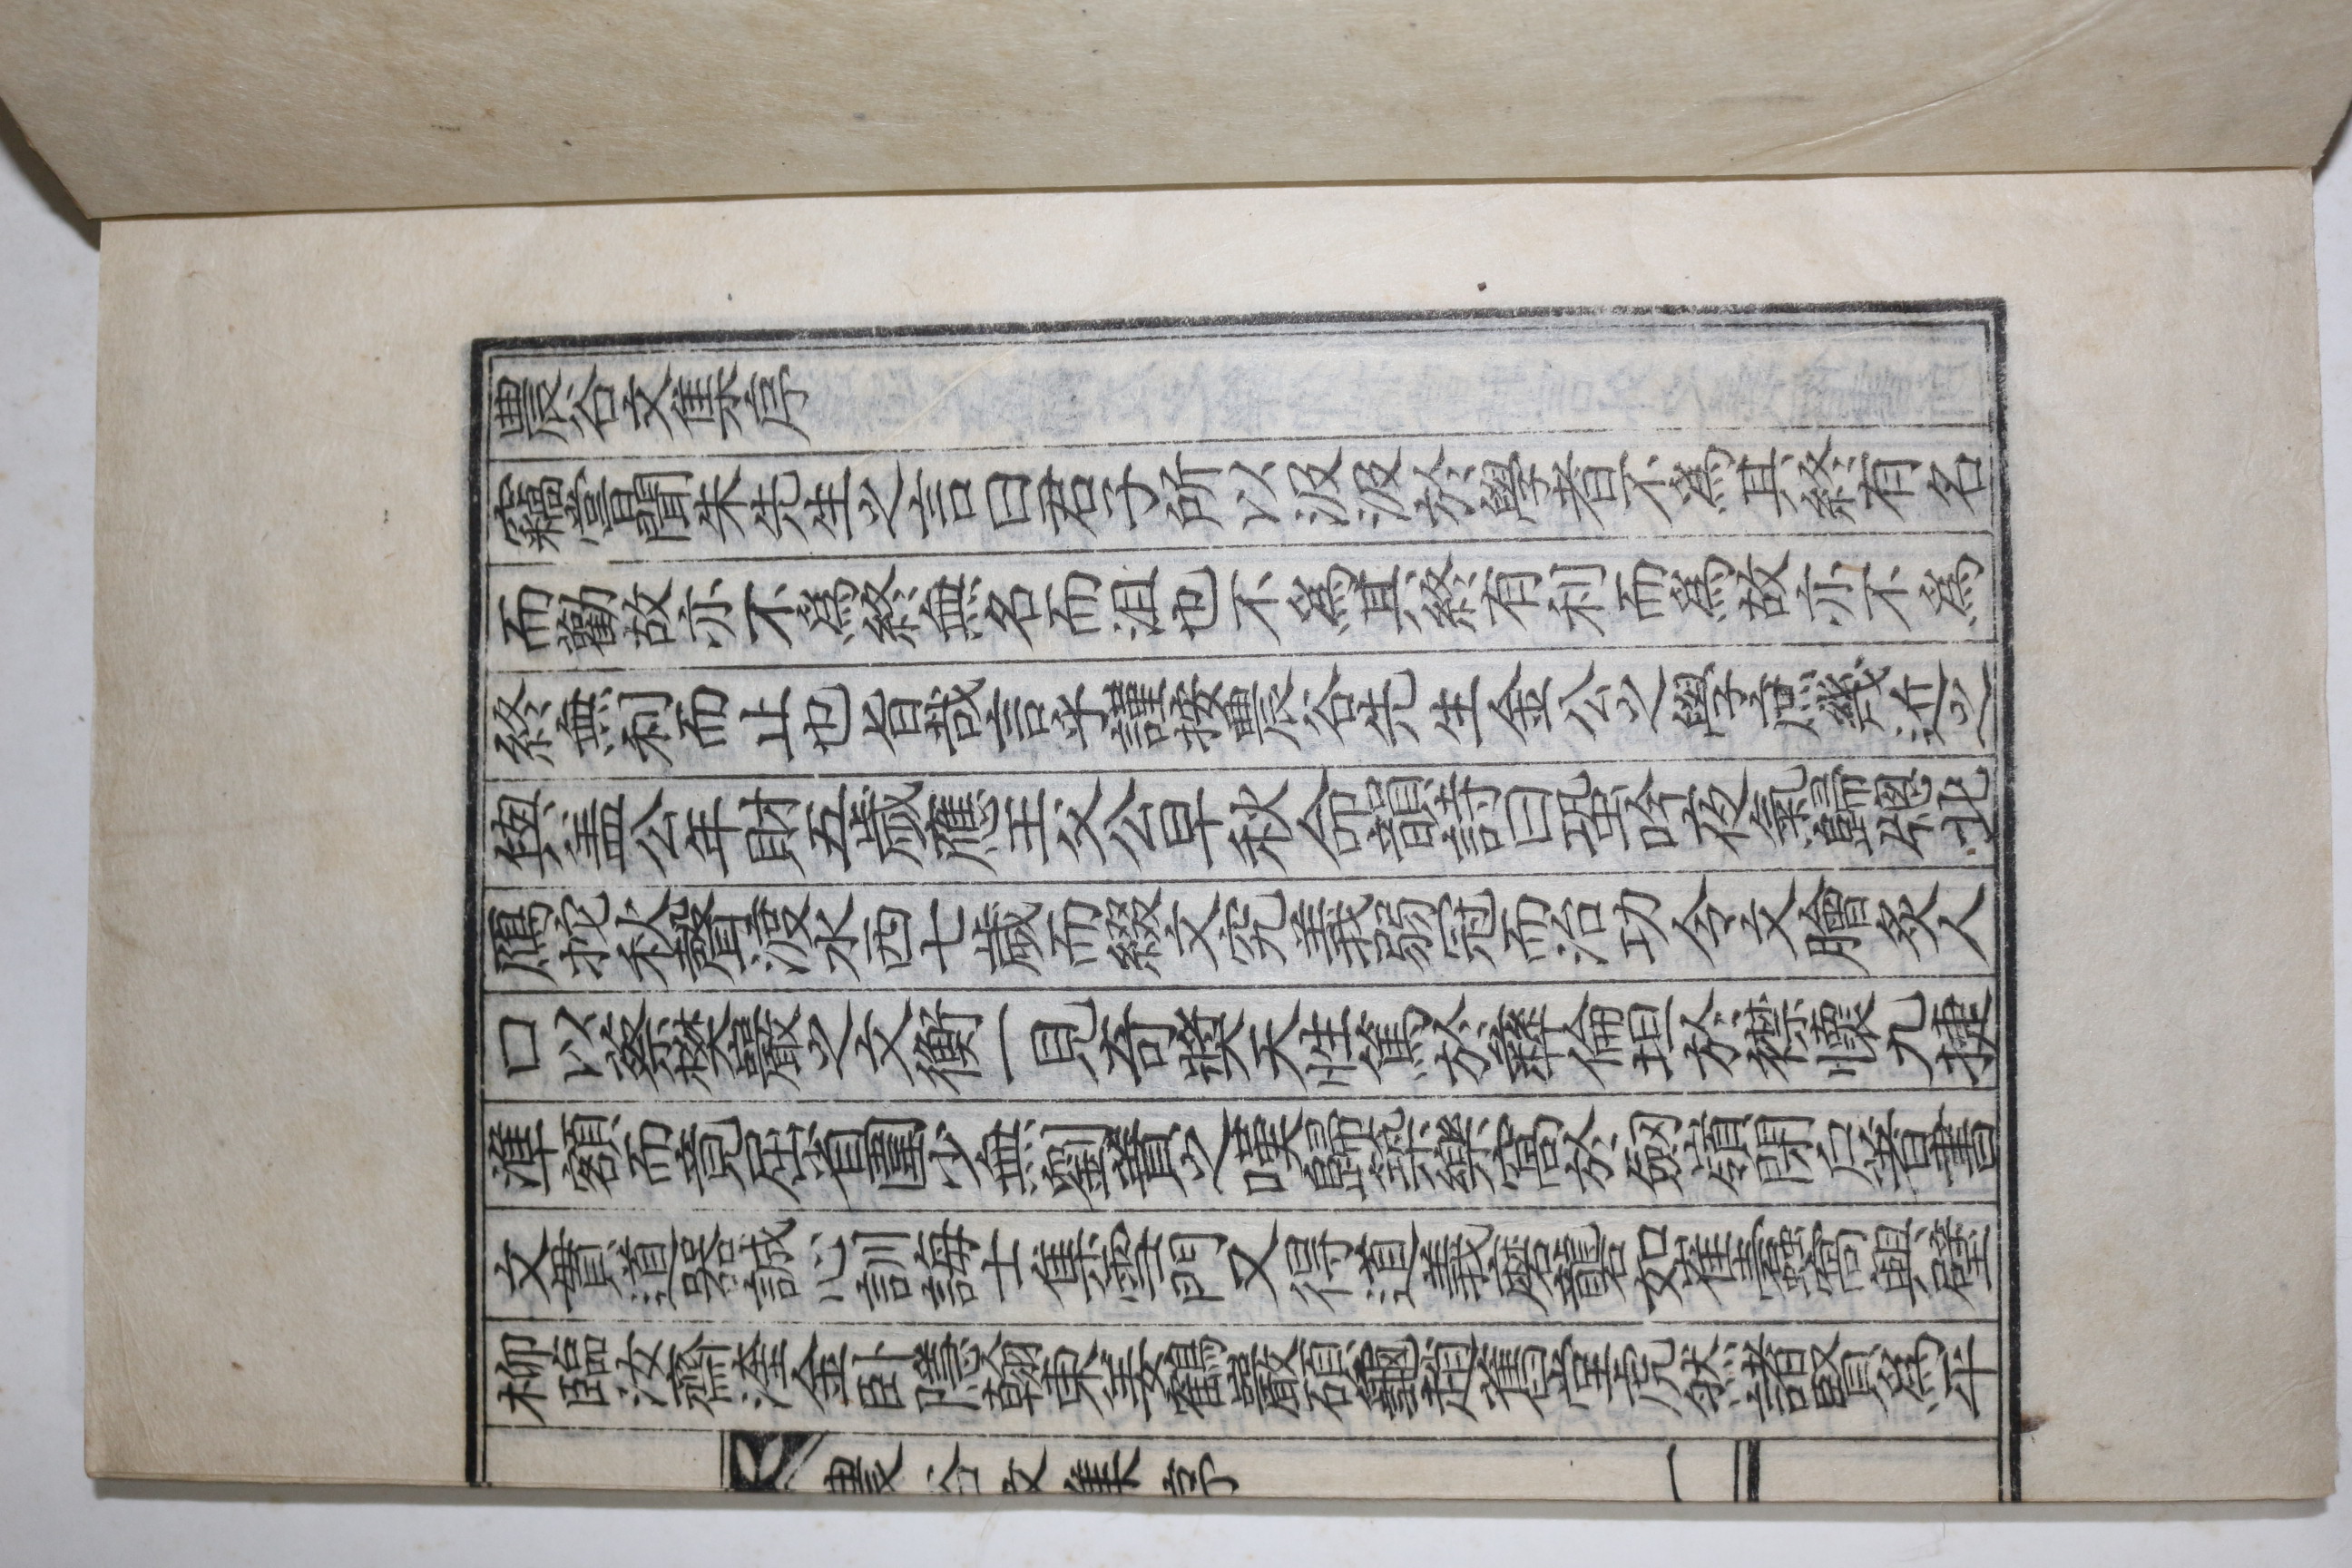 農谷文集序
竊嘗聞朱先生之言曰君子所以汲汲於學者不爲其終有名
而勸故亦不爲終無名而沮也不爲其終有利而爲故亦不爲
終無利而止也旨哉言乎謹按農谷先生金公之學庶幾近之
與盖公年財五歲應王父公早秋命韻詩曰蛩吟夜氣歸牕北
鴈拕秋聲渡水西七歲而綴文究義弱冠而治功令文膾炙人
口以蔡樊巖之文衡一見奇奬天性篤於彝倫坦於襟懷九捷
準額而竟屈省圍少無劉蕡之嘆歸築樂窩於劒嶺閉户著書
文貫道器誠心訓誨士集雪門又得道義磨礱如崔蠹窩興璧
柳臨汝齋㵛金卧隱翰東姜鶴巖碩龜趙舊堂虎然諸賢爲平
農谷文集序
一